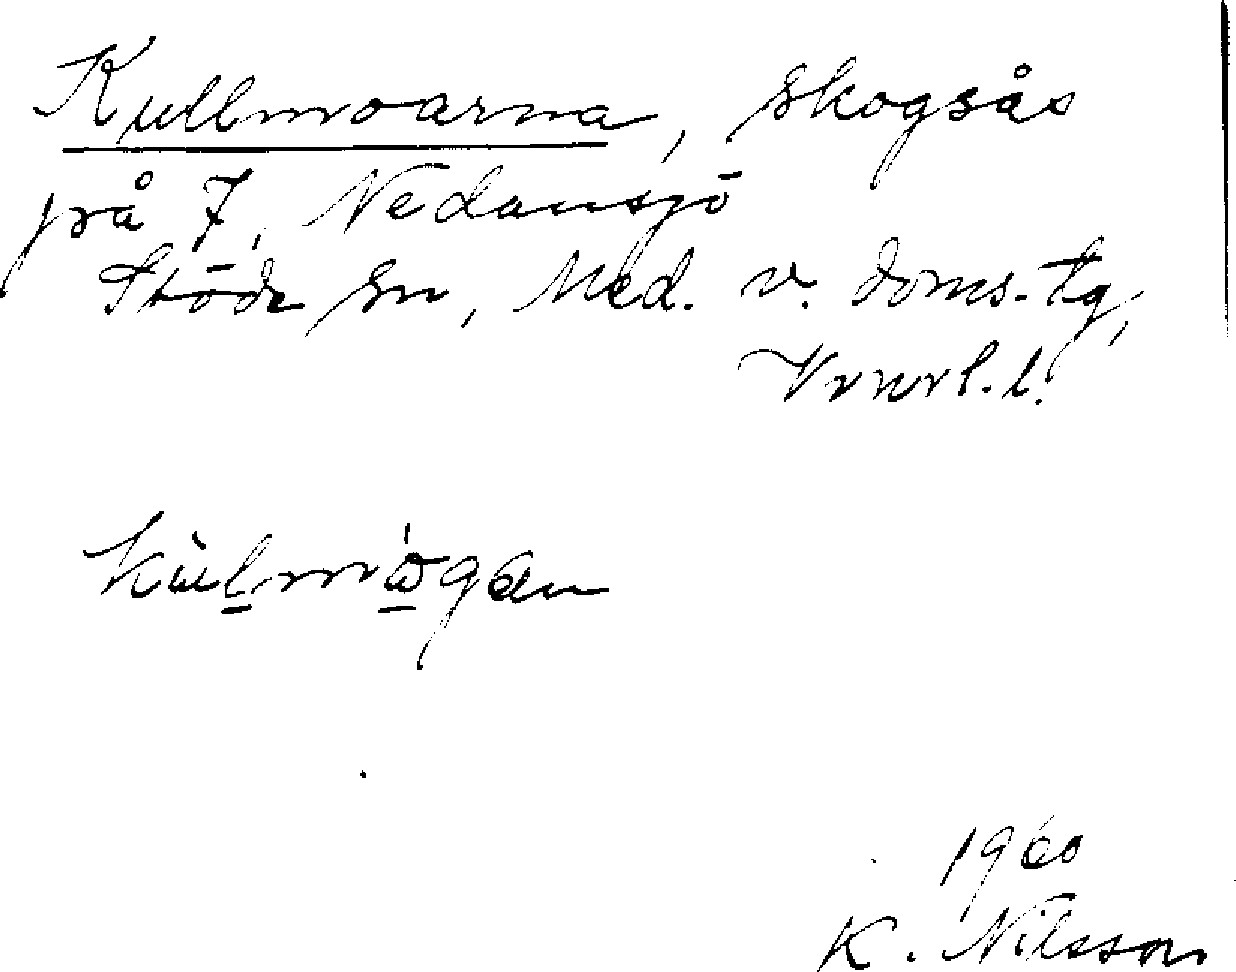 Kullmoarna, skogsås
på 7, Nedansjö
Stöde sn, Med. v. doms.-tg,
Vrnrl. l.
kùlmògan
1960
K. Nilsson